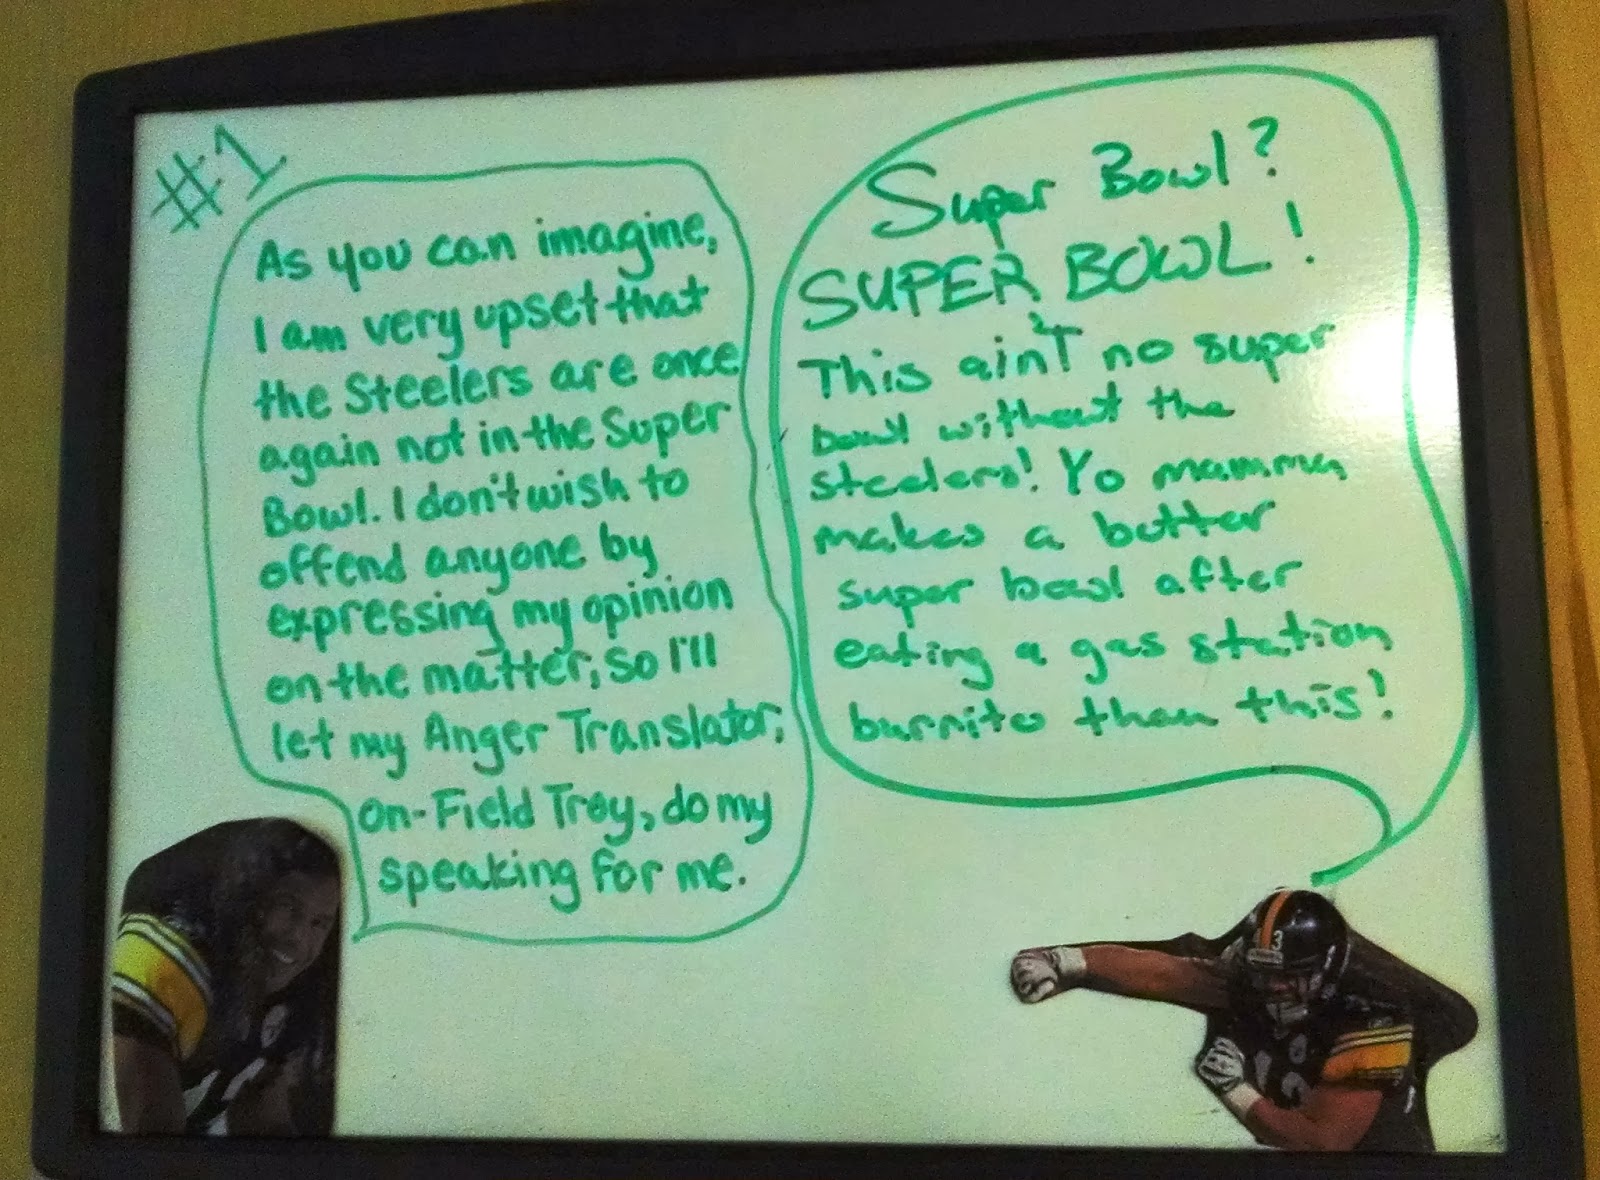 #1
As you can imagine,
I am very upset that
the Steelers are once
again not in the Super
Bowl. I don't wish to
offend anyone by
expressing my opinion
on the matter, so I'll
let my Anger Translator,
on-Field Troy, do my
speaking for me.
Super Bowl?
SUPER BOWL!
This ain't no super
bowl without the
steelers! Yo mamma
makes a better
super bowl after
eating a gas station
burrito than this!
3